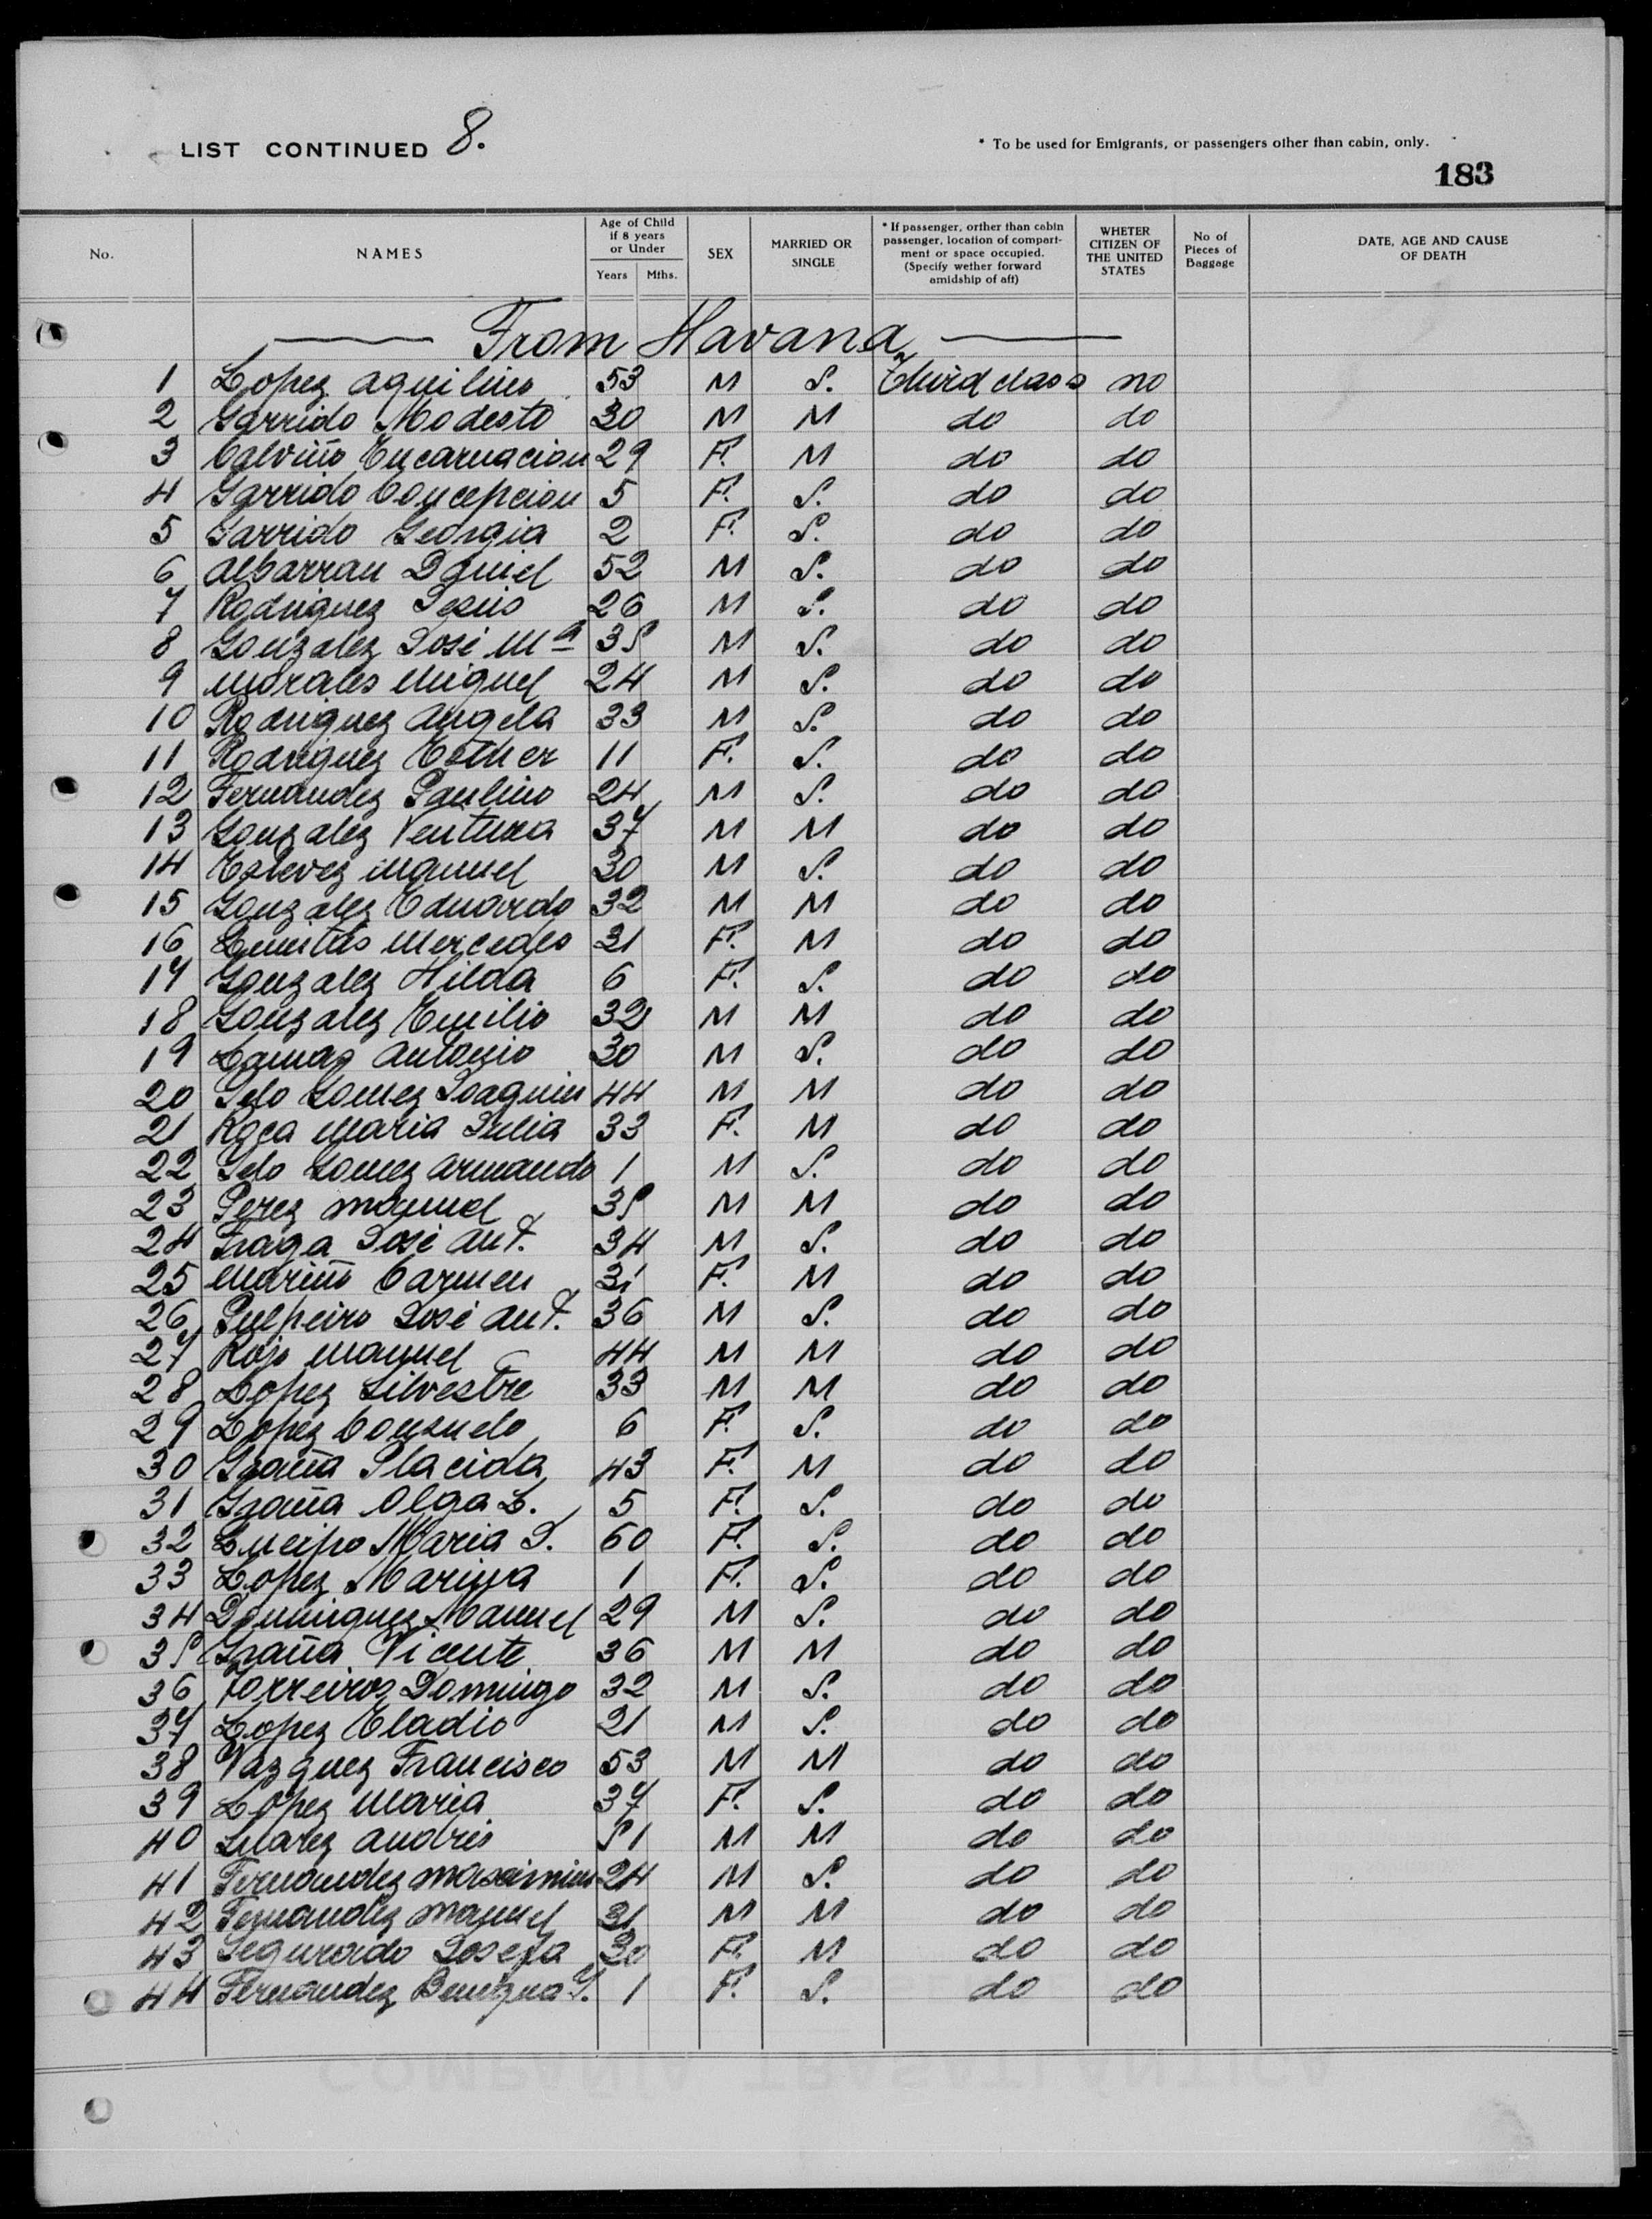 LIST CONTINUED 8.
* To be used for Emigrants, or passengers other than cabin, only.
183
No. NAMES Age of Child if 8 years or Under Years Mths. SEX MARRIED OR SINGLE * If passenger, orther than cabin passenger, location of compartment or space occupied. (Specify wether forward amidship of aft) WHETER CITIZEN OF THE UNITED STATES No of Pieces of Baggage DATE, AGE AND CAUSE OF DEATH
From Havana
1 Lopez Aquilino 53 M S. Third class no
2 Garrido Modesto 30 M M do do
3 Calviño Encarnacion 29 F. M do do
4 Garrido Concepcion 5 F. S. do do
5 Garrido Georgia 2 F. S. do do
6 Albarran Daniel 52 M S. do do
7 Rodriguez Jesús 26 M S. do do
8 Gonzalez José Mª 35 M S. do do
9 Morales Miguel 24 M S. do do
10 Rodriguez Angela 33 M S. do do
11 Rodriguez Esther 11 F. S. do do
12 Fernandez Paulino 24 M S. do do
13 Gonzalez Ventura 37 M M do do
14 Estevez Manuel 30 M S. do do
15 Gonzalez Eduardo 32 M M do do
16 Mercedes 31 F. M do do
17 Gonzalez Hilda 6 F. S. do do
18 Gonzalez Emilio 32 M M do do
19 Lamas Antonio 30 M S. do do
20 Gomez Joaquin 44 M M do do
21 Roca Maria Julia 33 F. M do do
22 Gomez Armando 1 M S. do do
23 Perez Manuel 35 M M do do
24 Fraga José Ant. 34 M S. do do
25 Mariño Carmen 31 F. M do do
26 Pulpeiro José Ant. 36 M S. do do
27 Rojo Manuel 44 M M do do
28 Lopez Silvestre 33 M M do do
29 Lopez Consuelo 6 F. S. do do
30 Graña Placida 43 F. M do do
31 Graña Olga L. 5 F. S. do do
32 Maria J. 60 F. S. do do
33 Lopez Marina 1 F. S. do do
34 Dominguez Manuel 29 M S. do do
35 Graña Vicente 36 M M do do
36 Torreiros Domingo 32 M S. do do
37 Lopez Eladio 21 M S. do do
38 Vazquez Francisco 53 M M do do
39 Lopez Maria 37 F. S. do do
40 Suarez Andrés 51 M M do do
41 Fernandez 24 M S. do do
42 Fernandez Manuel 31 M M do do
43 Segurado Josefa 30 F. M do do
44 Fernandez Benigna S. 1 F. S. do do
COMPAÑIA TRASATLANTICA